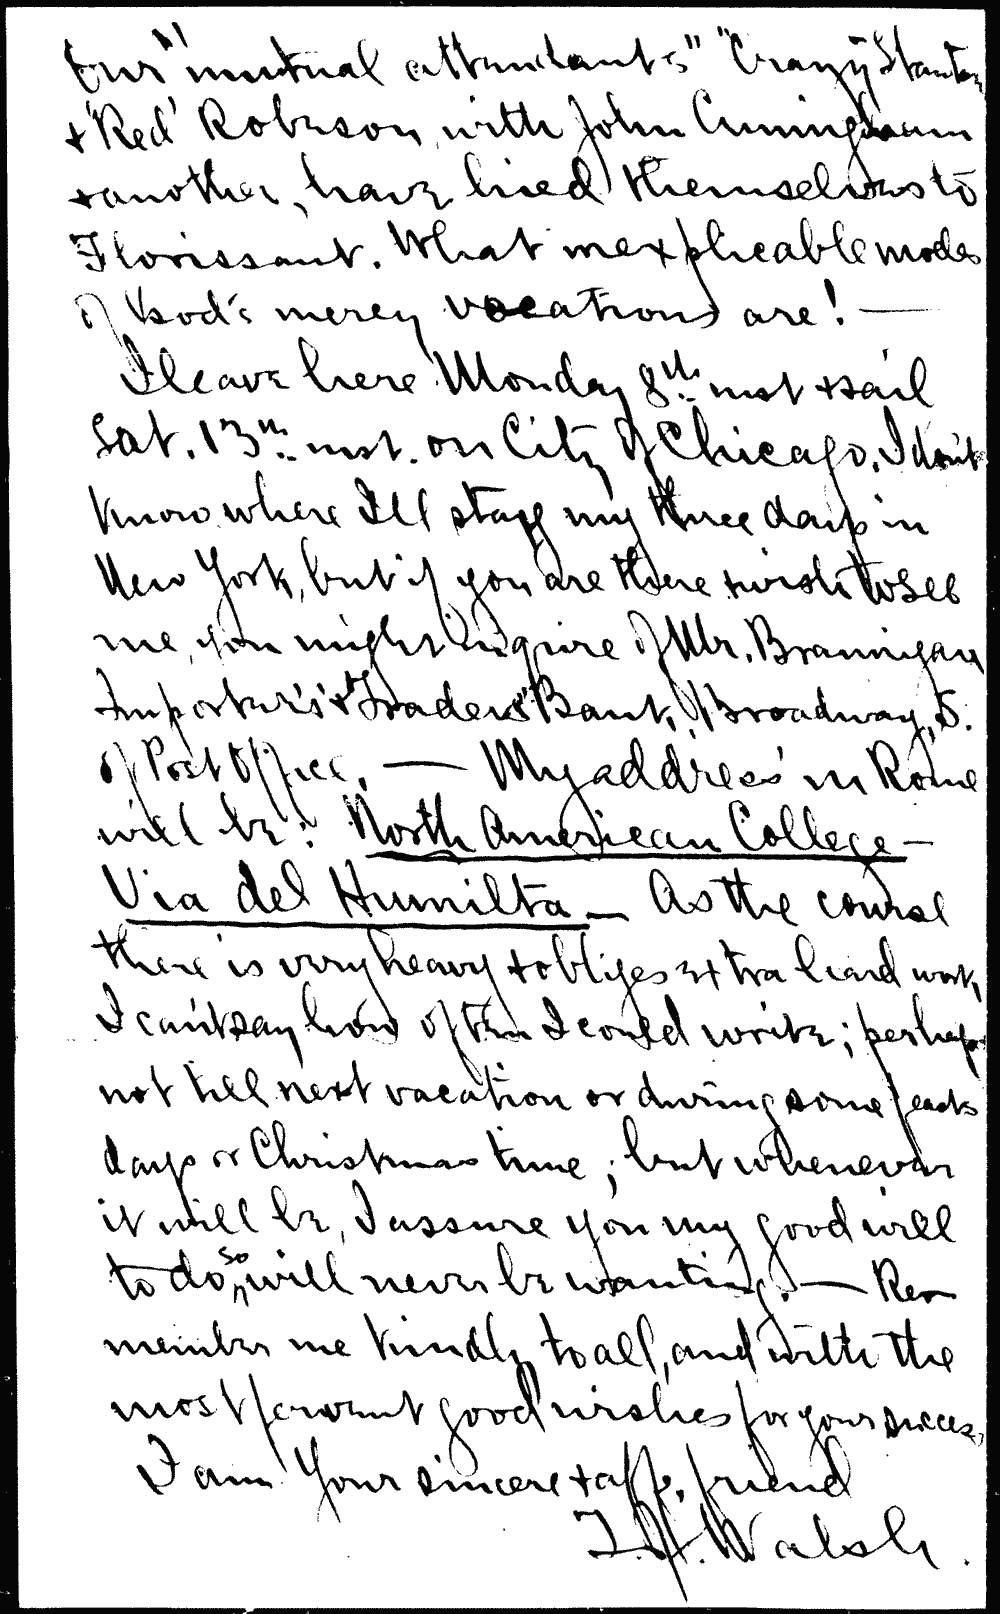 Our "mutual attendants" "Crazy" Stanton
& 'Red' Robeson, with John Cuningham
& another, have hied themselves to
Florissant. What inexplicable modes
of God's mercy vocations are! —
I leave here Monday 8th inst & sail
Sat. 13th inst. on City of Chicago. I don't
know where I'll stay my three days in
New York, but if you are there & wish to see
me, you might inquire of Mr. Brannigan
Importer's & Traders' Bank, Broadway, S.
of Post Office. — My address in Rome
will be: North American College —
Via del Humilta — As the course
there is very heavy & obliges extra hard work
I can't say how often I could write; perhaps
not till next vacation or during some feast
days or Christmas time; but whenever
it will be, I assure you my good will
to do so will never be wanting. — Re-
member me kindly to all, and with the
most fervent good wishes for your success,
I am Your sincere & aff. friend
T. H. Walsh.